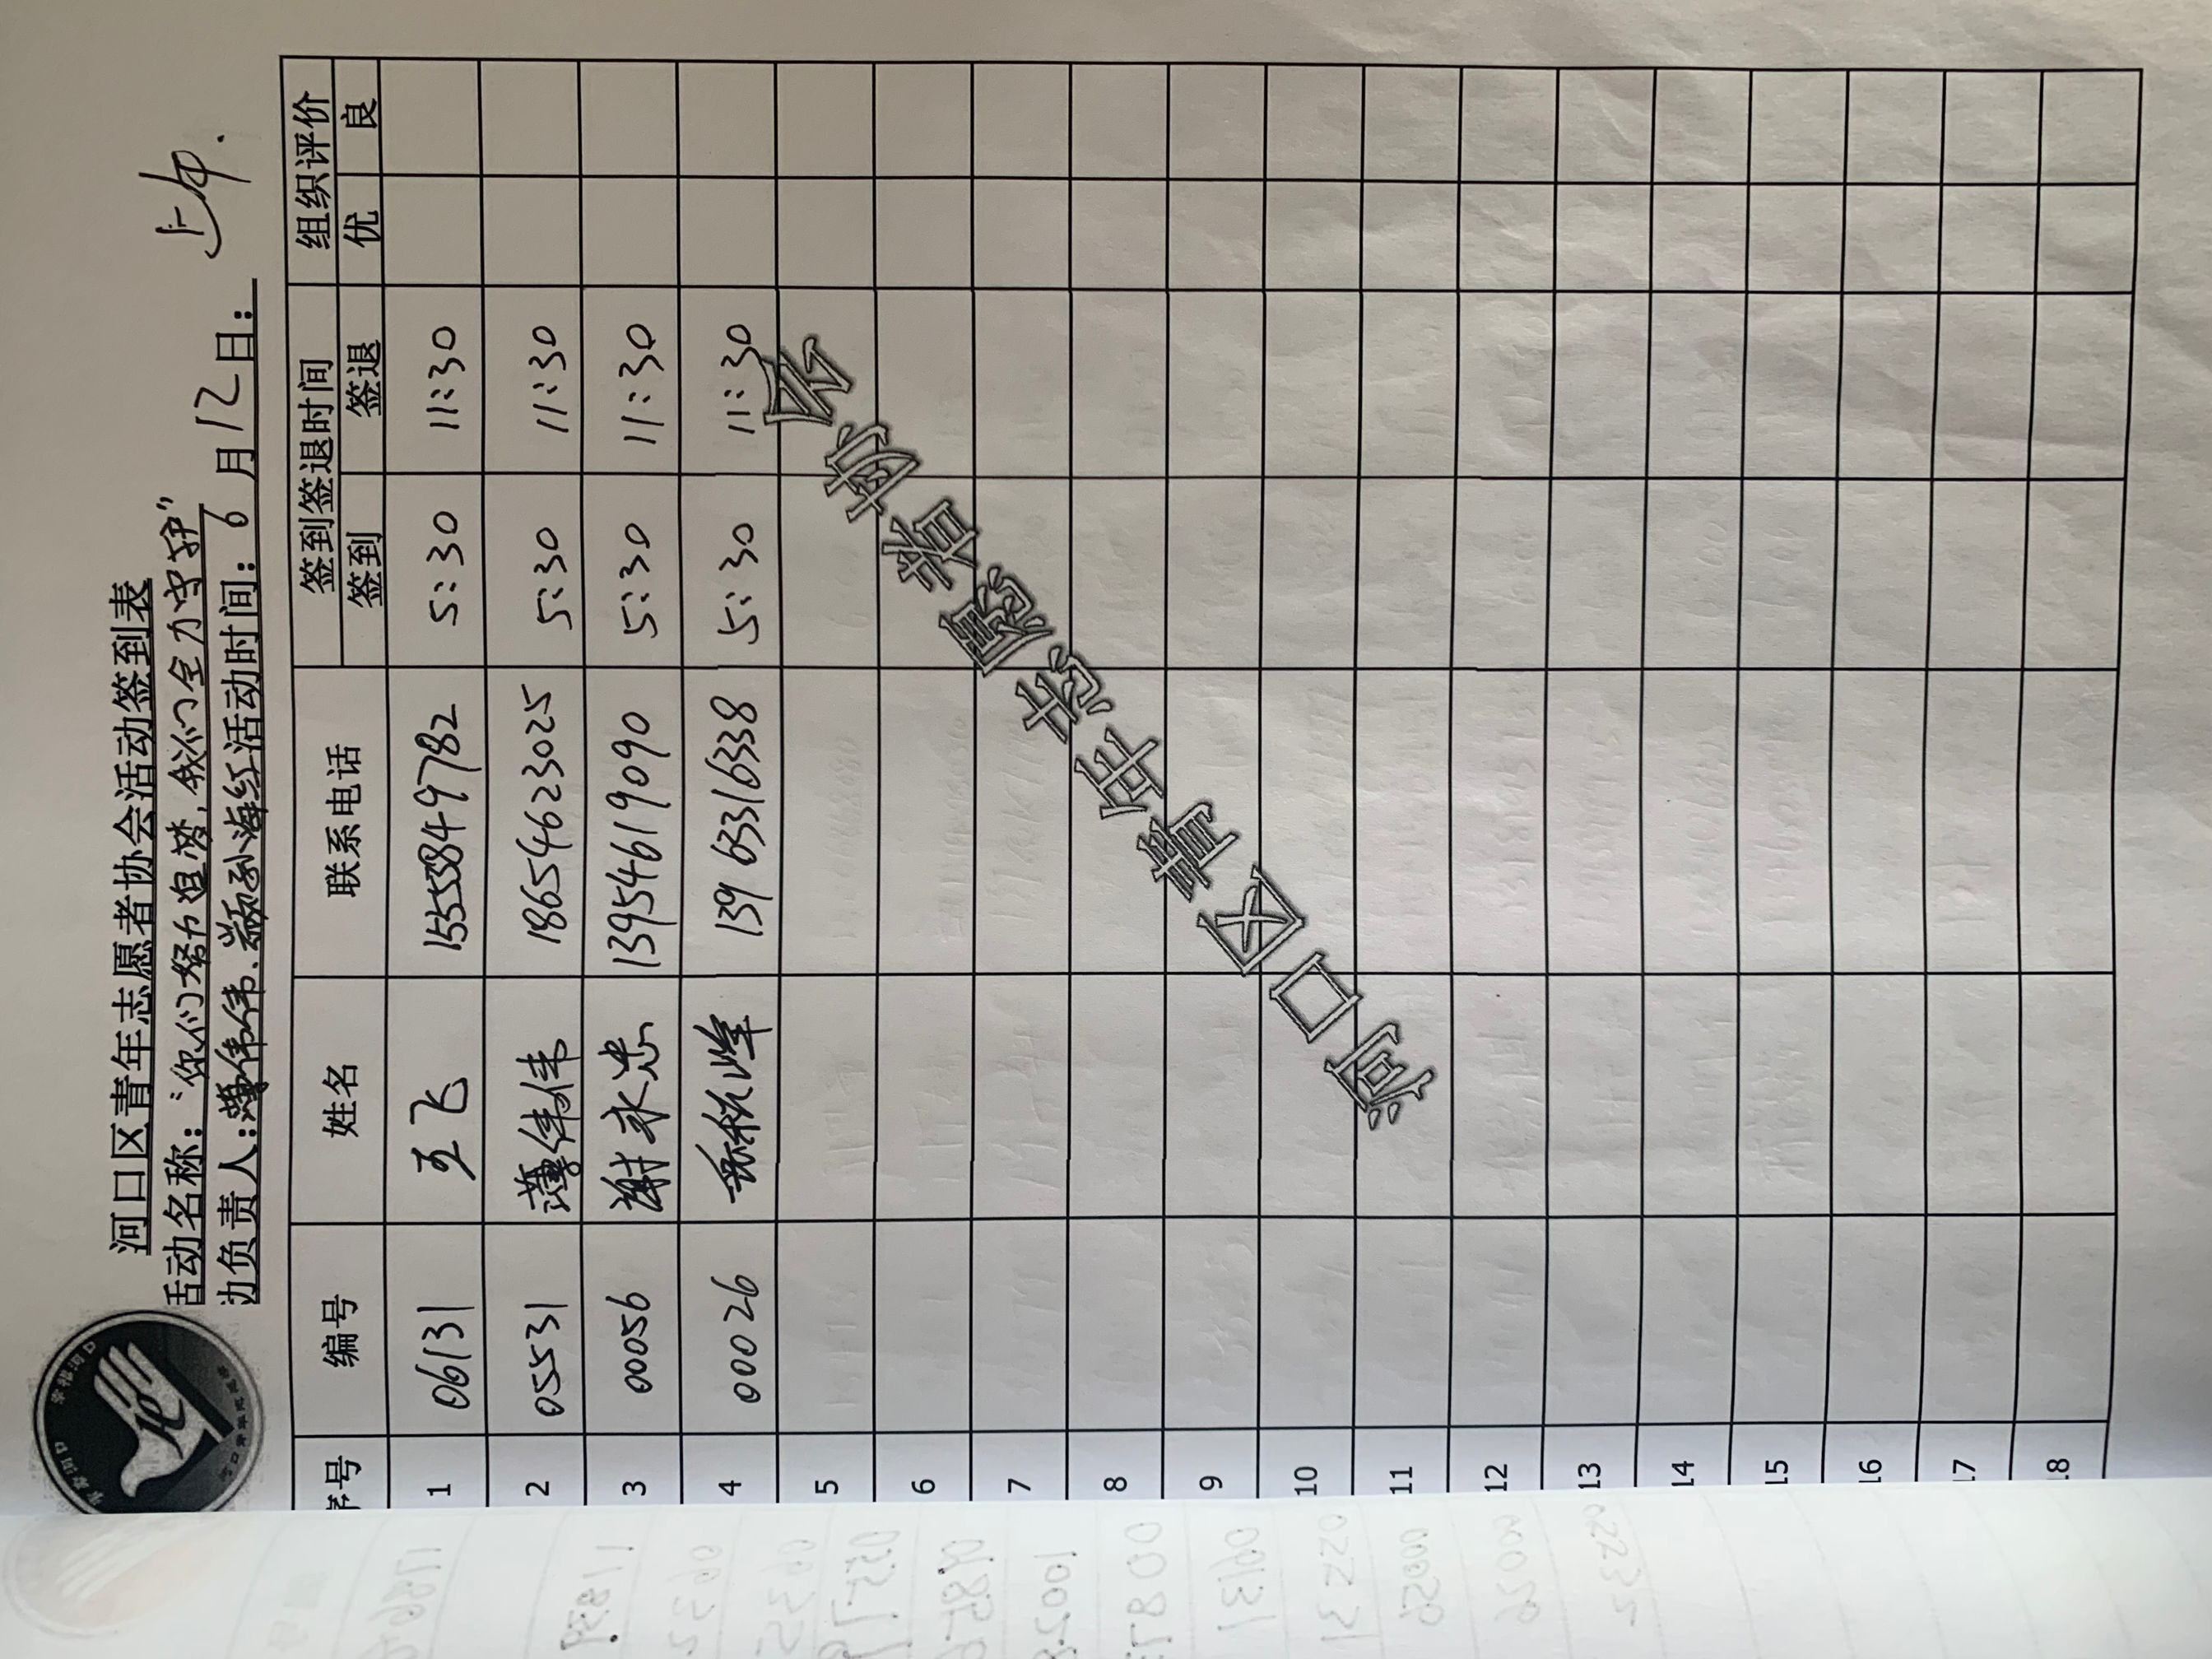 河口区青年志愿者协会活动签到表
活动名称："你们努力追梦，我们全力守护"
动负责人：薄伟伟、孙海红活动时间：6月12日：上午.
序号 编号 姓名 联系电话 签到签退时间 组织评价
签到 签退 优 良
1 06131 王飞 15558497782 5:30 11:30
2 05531 薄伟伟 18654623025 5:30 11:30
3 00056 谢永忠 13954619090 5:30 11:30
4 00026 13963316338 5:30 11:30
5
6
7
8
9
10
11
12
13
14
15
16
17
18
河口区青年志愿者协会